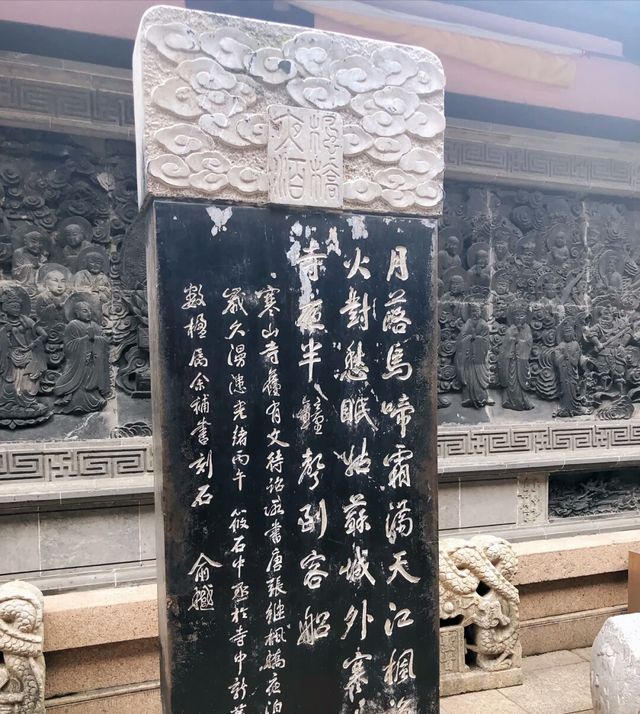 楓橋
夜泊
月落烏啼霜滿天江楓漁
火對愁眠姑蘇城外寒
寺夜半鐘聲到客船
寒山寺舊有文待詔所書唐張繼楓橋夜泊
歲久漫漶光緒丙午筱石中丞於寺中新葺
數楹屬余補書刻石 俞樾